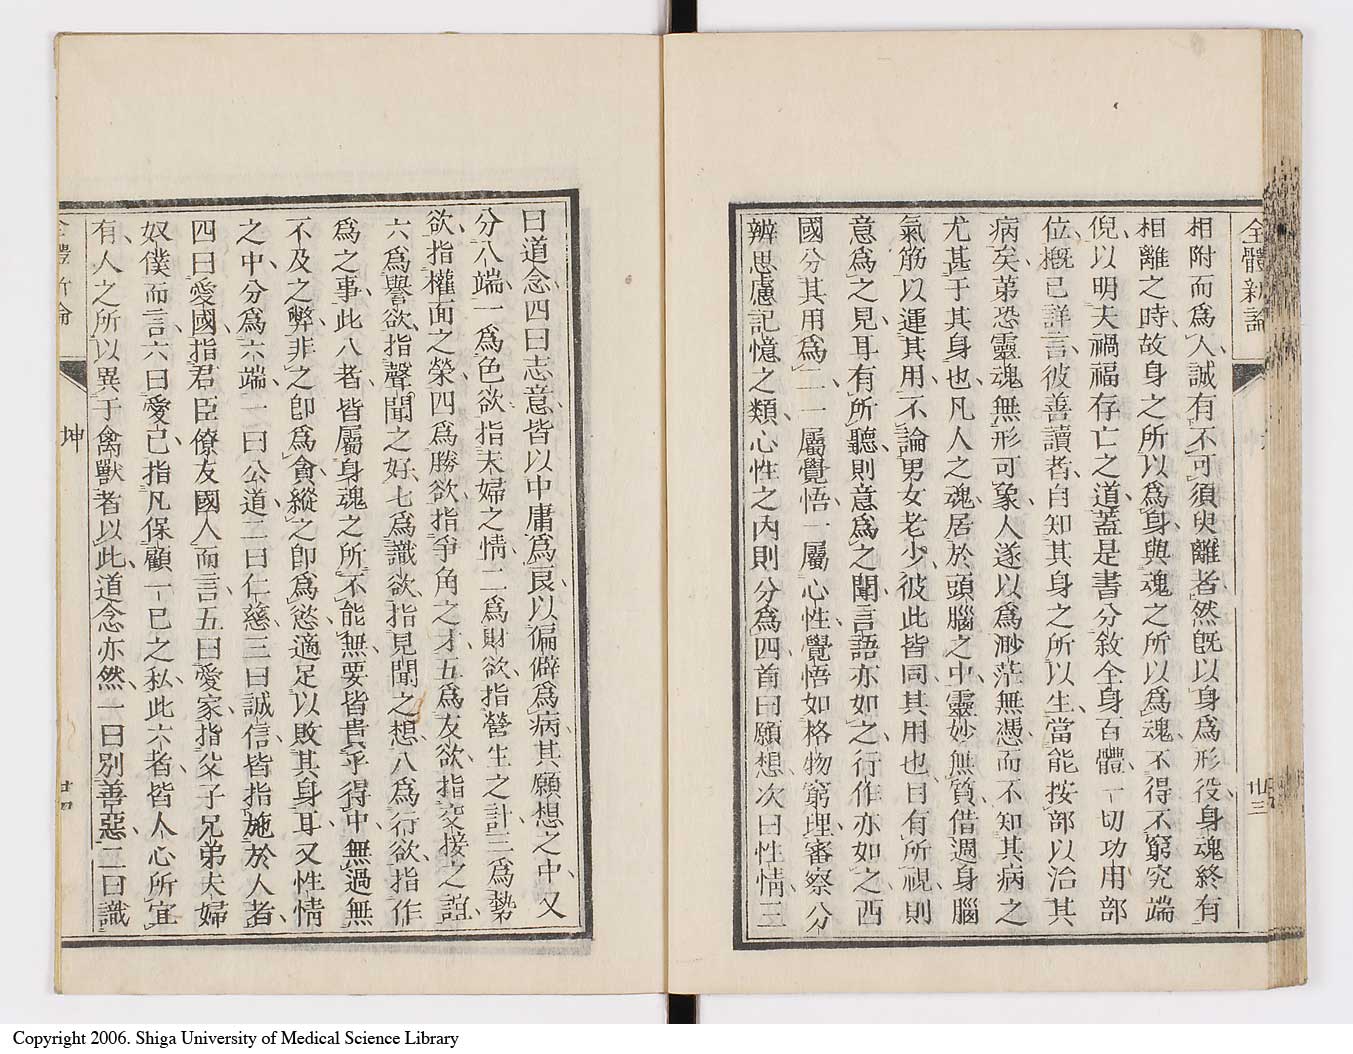 全體新論
廿三
相附而爲人誠有不可須臾離者然旣以身爲形役身魂終有
相離之時故身之所以爲身與魂之所以爲魂不得不窮究端
倪以明夫禍福存亡之道蓋是書分敘全身百體一切功用部
位概已詳言彼善讀者自知其身之所以生當能按部以治其
病矣苐恐靈魂無形可象人遂以爲渺茫無憑而不知其病之
尤甚于其身也凡人之魂居於頭腦之中靈妙無質借週身腦
氣筋以運其用不論男女老少彼此皆同其用也目有所視則
意爲之見耳有所聽則意爲之聞言語亦如之行作亦如之西
國分其用爲二一屬覺悟一屬心性覺悟如格物窮理審察分
辨思慮記憶之類心性之內則分爲四首曰願想次曰性情三
曰道念四曰志意皆以中庸爲良以偏僻爲病其願想之中又
分八端一爲色欲指夫婦之情二爲財欲指營生之計三爲勢
欲指權面之榮四爲勝欲指爭角之才五爲友欲指交接之誼
六爲譽欲指聲聞之好七爲識欲指見聞之想八爲行欲指作
爲之事此八者皆屬身魂之所不能無要皆貴乎得中無過無
不及之弊非之卽爲貪縱之卽爲慾適足以敗其身耳又性情
之中分爲六端一曰公道二曰仁慈三曰誠信皆指施於人者
四曰愛國指君臣僚友國人而言五曰愛家指父子兄弟夫婦
奴僕而言六曰愛己指凡保顧一已之私此六者皆人心所宜
有人之所以異于禽獸者以此道念亦然一曰別善惡二曰識
全體新論
坤
廿四
Copyright 2006. Shiga University of Medical Science Library